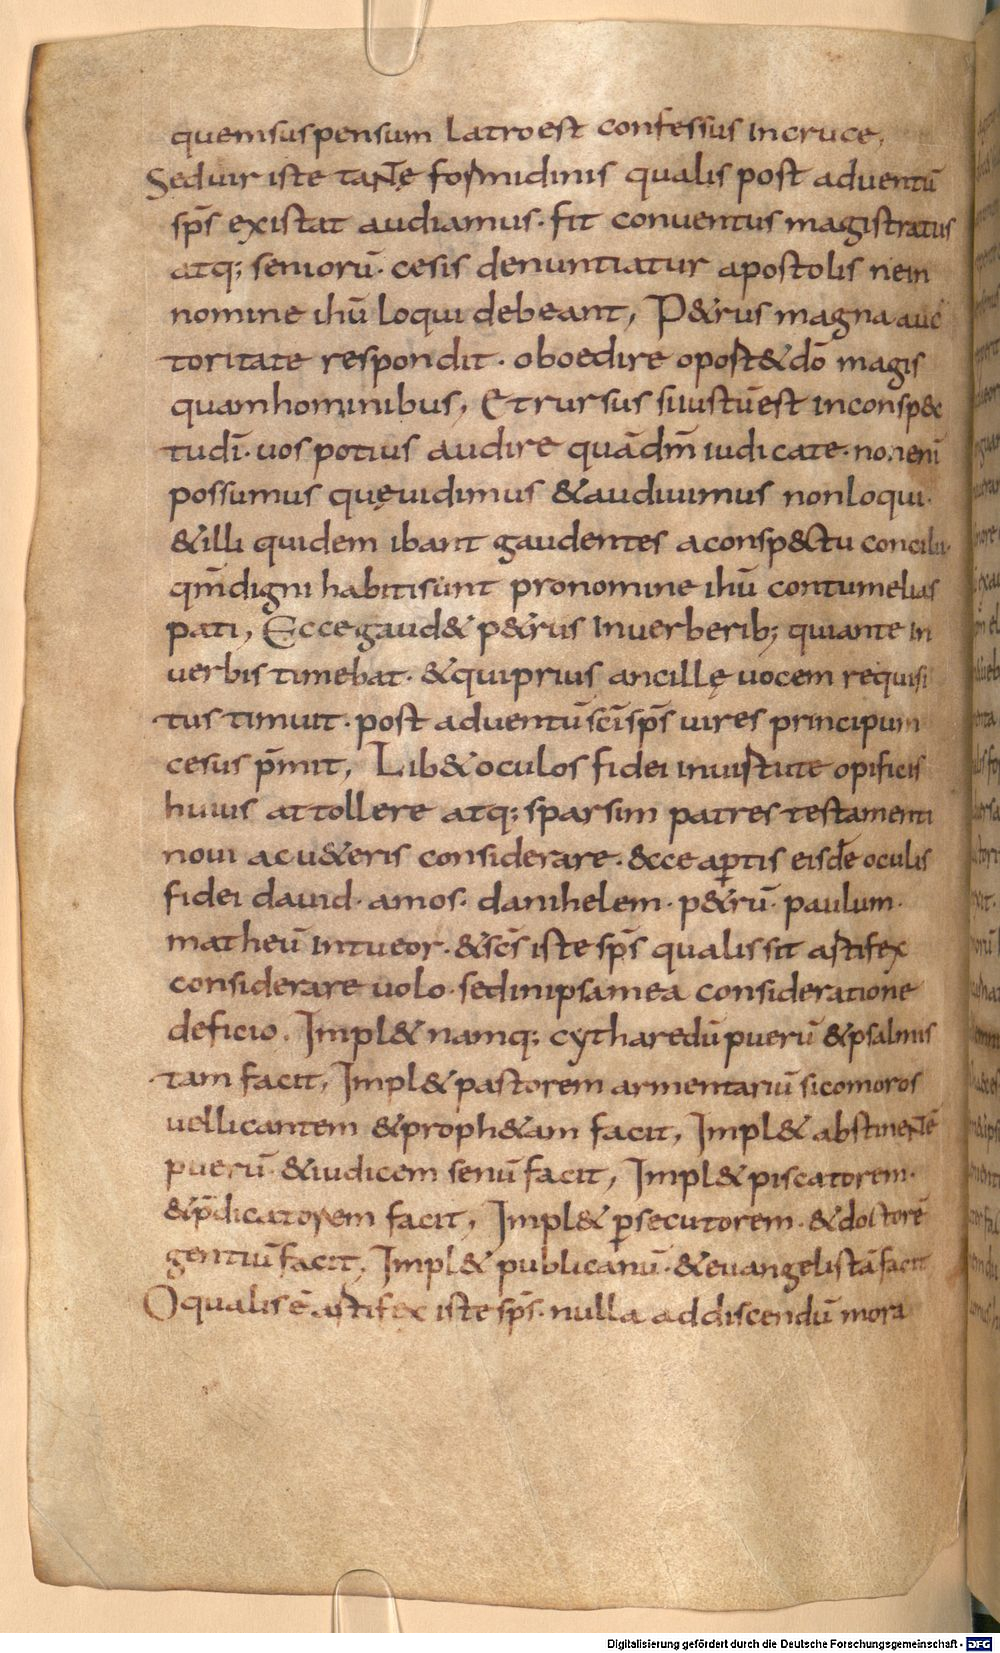 quemsuspensum latroest confessus Incruce,
Seduir iste tantę formidinis qualis post aduentū
sp̄s existat audiamus · fit conuentus magistratus
atq; seniorū · cesis denuntiatur apostolis nein
nomine ihū loqui debeant, P&rus magna auc
toritate respondit · oboedire oport&dō magis
quamhominibus, Et rursus siiustūest inconsp&c
tudī · uos potius audire quādm̄ iudicate · nonenī
possumus quęuidimus &audiuimus nonloqui ·
&illi quidem ibant gaudentes aconsp&ctu concilii ·
qm̄digni habitisunt pronomine ihū contumelias
pati, Ecce gaud& p&rus Inuerberib; quiante In
uerbis timebat · &quiprius ancillę uocem requisi
tus timuit · post aduentūsc̄isp̄s uires principum
cesus p̄mit, Lib& oculos fidei inuirtute opificis
huius attollere atq; sparsim patres testamenti
noui acu&eris considerare · &cce aꝑtis eisdē oculis
fidei dauid · amos · danihelem · p&rū · paulum ·
matheū Intueor · &sc̄s iste sp̄s qualis sit artifex
considerare uolo · sedinipsamea consideratione
deficio. Impl& namq; cytharedū puerū &psalmis
tam facit, Impl& pastorem armentariū sicomoros
uellicantem &proph&am facit, Impl& abstinentē
puerū · &iudicem senū facit, Impl& piscatorem ·
&p̄dicatorem facit, Impl& ꝑsecutorem · &doctorē
gentiū facit, Impl& publicanū · &euangelistā facit
O qualis ē artifex iste sp̄s · nulla addiscendū mora
Digitalisierung gefördert durch die Deutsche Forschungsgemeinschaft - DFG